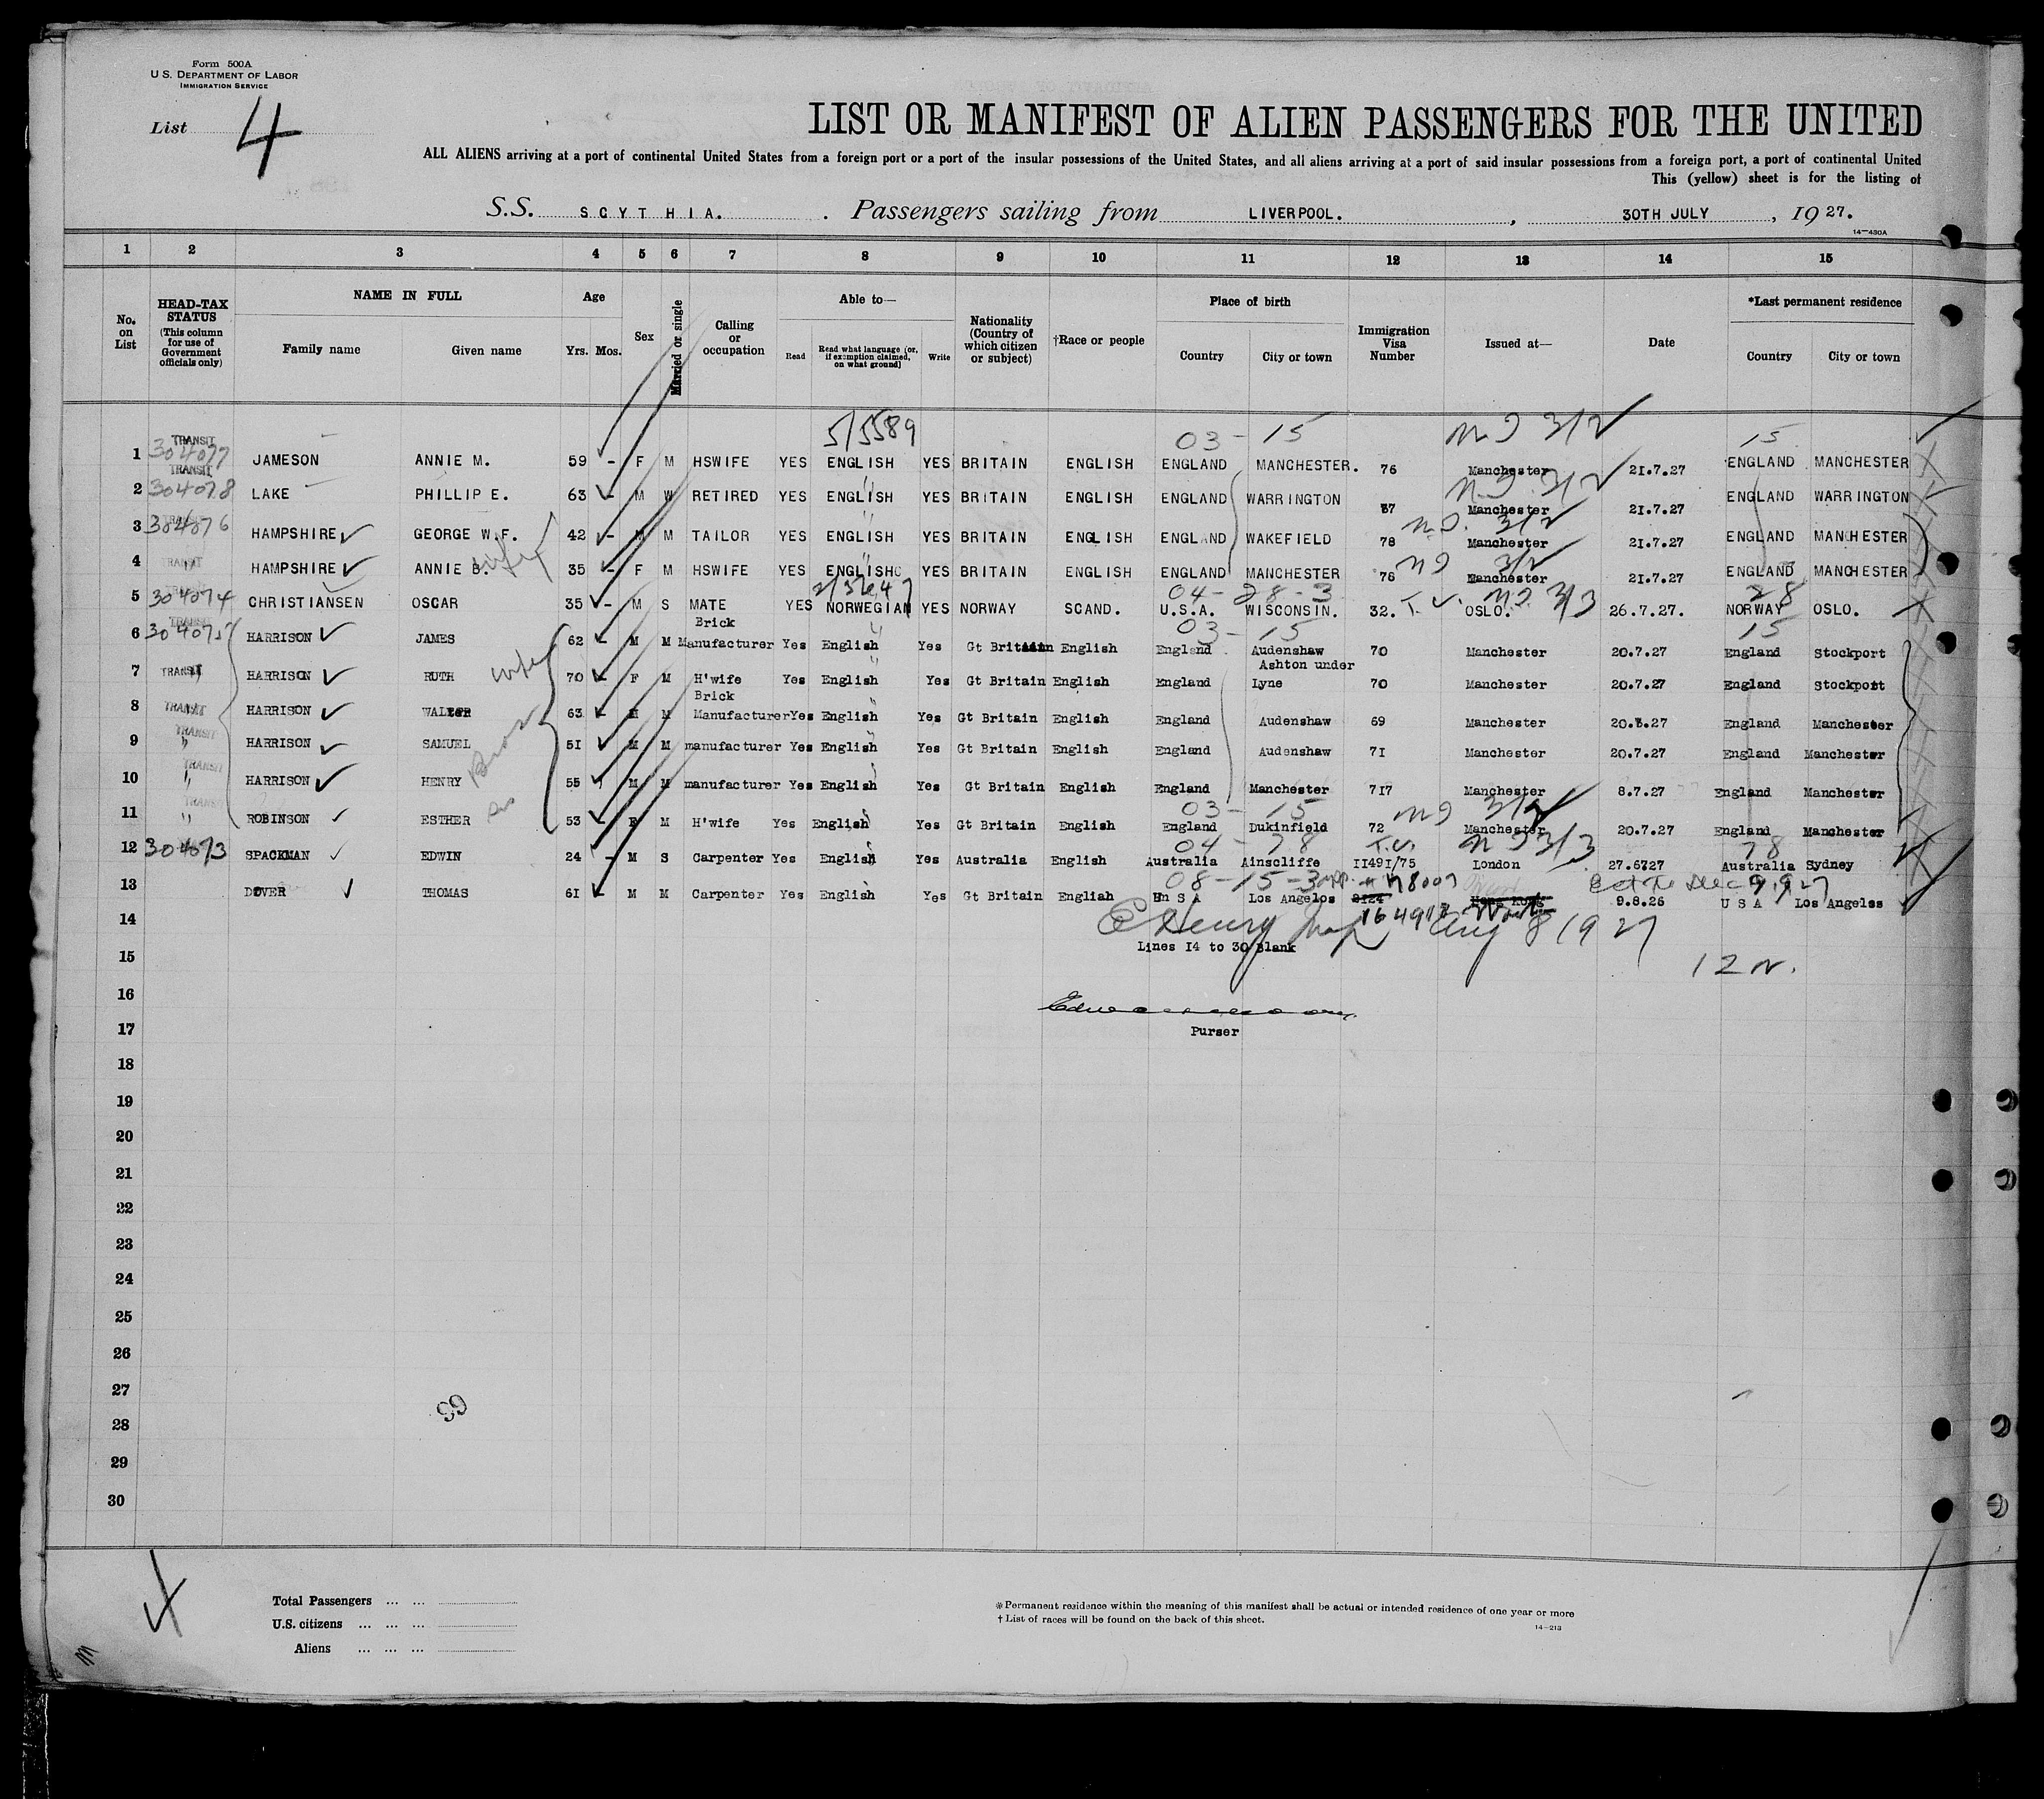 Form 500A
U.S. DEPARTMENT OF LABOR
IMMIGRATION SERVICE
List 4
LIST OR MANIFEST OF ALIEN PASSENGERS FOR THE UNITED
ALL ALIENS arriving at a port of continental United States from a foreign port or a port of the insular possessions of the United States, and all aliens arriving at a port of said insular possessions from a foreign port, a port of continental United
This (yellow) sheet is for the listing of
S.S. SCYTHIA. Passengers sailing from LIVERPOOL. , 30TH JULY , 1927.
14—480A
1 2 3 4 5 6 7 8 9 10 11 12 13 14 15
No. on List
HEAD-TAX STATUS (This column for use of Government officials only)
NAME IN FULL
Family name Given name
Age Yrs. Mos.
Sex
Married or single
Calling or occupation
Able to—
Read Read what language (or, if exemption claimed, on what ground) Write
Nationality (Country of which citizen or subject)
†Race or people
Place of birth
Country City or town
Immigration Visa Number
Issued at—
Date
*Last permanent residence
Country City or town
5/5589 03 - 15 3/2 15
1 TRANSIT 304077 JAMESON ANNIE M. 59 - F M HSWIFE YES ENGLISH YES BRITAIN ENGLISH ENGLAND MANCHESTER. 76 Manchester 21.7.27 ENGLAND MANCHESTER
2 TRANSIT 304078 LAKE PHILLIP E. 63 - M W RETIRED YES ENGLISH YES BRITAIN ENGLISH ENGLAND WARRINGTON 37 Manchester 21.7.27 ENGLAND WARRINGTON
3 304076 HAMPSHIRE GEORGE W.F. 42 - M M TAILOR YES ENGLISH YES BRITAIN ENGLISH ENGLAND WAKEFIELD 78 Manchester 21.7.27 ENGLAND MANCHESTER
4 TRANSIT " HAMPSHIRE ANNIE B. wife 35 - F M HSWIFE YES ENGLISH YES BRITAIN ENGLISH ENGLAND MANCHESTER 76 Manchester 21.7.27 ENGLAND MANCHESTER
04 - 28 - 3 3/3 28
5 304074 CHRISTIANSEN OSCAR 35 - M S MATE YES NORWEGIAN YES NORWAY SCAND. U.S.A. WISCONSIN. 32. OSLO. 26.7.27. NORWAY OSLO.
03 - 15 15
6 304075 HARRISON JAMES 62 - M M Brick Manufacturer Yes English Yes Gt Britain English England Audenshaw 70 Manchester 20.7.27 England Stockport
7 TRANSIT HARRISON RUTH wife 70 - F M H'wife Yes English Yes Gt Britain English England Ashton under Lyne 70 Manchester 20.7.27 England Stockport
8 TRANSIT HARRISON 63 - M M Brick Manufacturer Yes English Yes Gt Britain English England Audenshaw 69 Manchester 20.7.27 England Manchester
9 TRANSIT " HARRISON SAMUEL 51 M M manufacturer Yes English Yes Gt Britain English England Audenshaw 71 Manchester 20.7.27 England Manchester
10 TRANSIT " HARRISON HENRY 55 M M manufacturer Yes English Yes Gt Britain English England Manchester 717 Manchester 8.7.27 England Manchester
03 - 15 3/2
11 TRANSIT " ROBINSON ESTHER 53 F M H'wife Yes English Yes Gt Britain English England Dukinfield 72 Manchester 20.7.27 England Manchester
04 - 78 T.V. 3/3 78
12 304073 SPACKMAN EDWIN 24 - M S Carpenter Yes English Yes Australia English Australia Ainscliffe II491/75 London 27.6727 Australia Sydney
08 - 15 - 3
13 DOVER THOMAS 61 M M Carpenter Yes English Yes Gt Britain English U S A Los Angelos 2124 Hong Kong 9.8.26 U S A Los Angelos
14 Aug 8 1927
Lines 14 to 30 Blank
15 12 N.
16
17 Purser
18
19
20
21
22
23
24
25
26
27
99
28
29
30
Total Passengers ... ...
U.S. citizens ... ... ...
Aliens ... ... ...
*Permanent residence within the meaning of this manifest shall be actual or intended residence of one year or more
†List of races will be found on the back of this sheet.
14—213